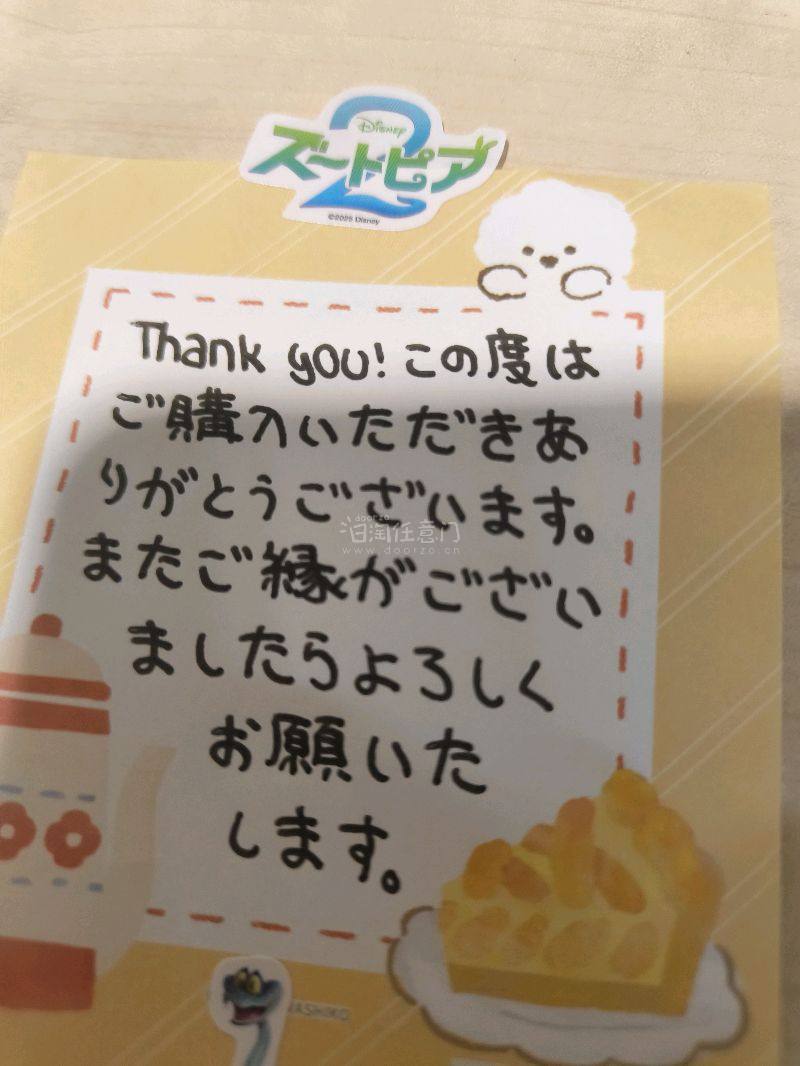 Disney
ズートピア
2
©2025 Disney
Thank you! この度は
ご購入いただきあ
りがとうございます。
doorzo
汩淘任意门
www.doorzo.cn
またご縁がござい
ましたらよろしく
お願いいた
します。